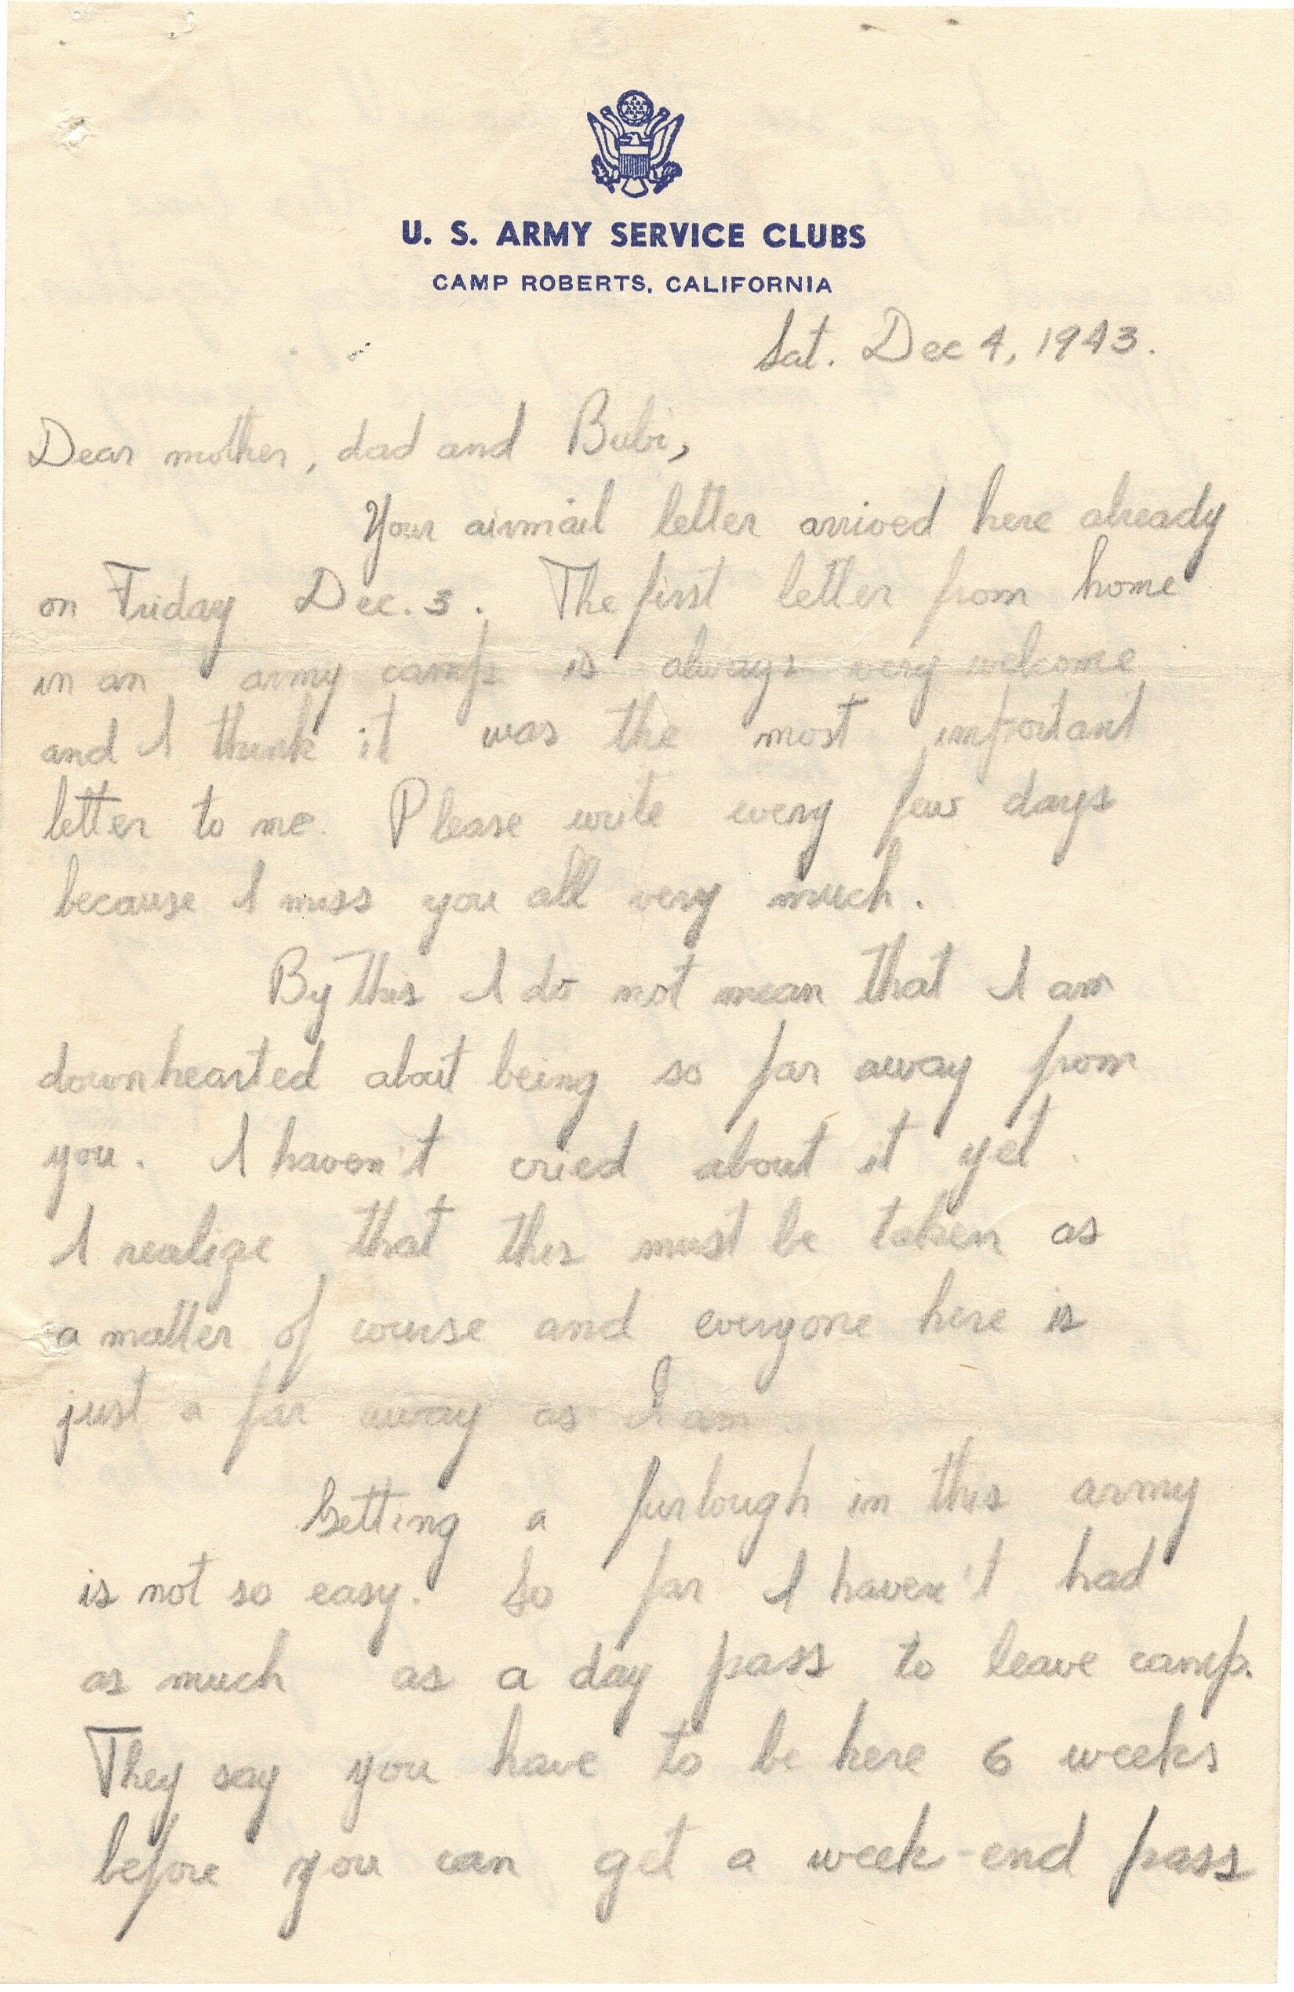 U. S. ARMY SERVICE CLUBS
CAMP ROBERTS, CALIFORNIA
Sat. Dec 4, 1943.
Dear mother, dad and Bubi,
Your airmail letter arrived here already
on Friday Dec. 3. The first letter from home
in an army camp is always very welcome
and I think it was the most important
letter to me. Please write every few days
because I miss you all very much.
By this I do not mean that I am
downhearted about being so far away from
you. I haven't cried about it yet.
I realize that this must be taken as
a matter of course and everyone here is
just a far away as I am
Getting a furlough in this army
is not so easy. So far I haven't had
as much as a day pass to leave camp.
They say you have to be here 6 weeks
before you can get a week-end pass